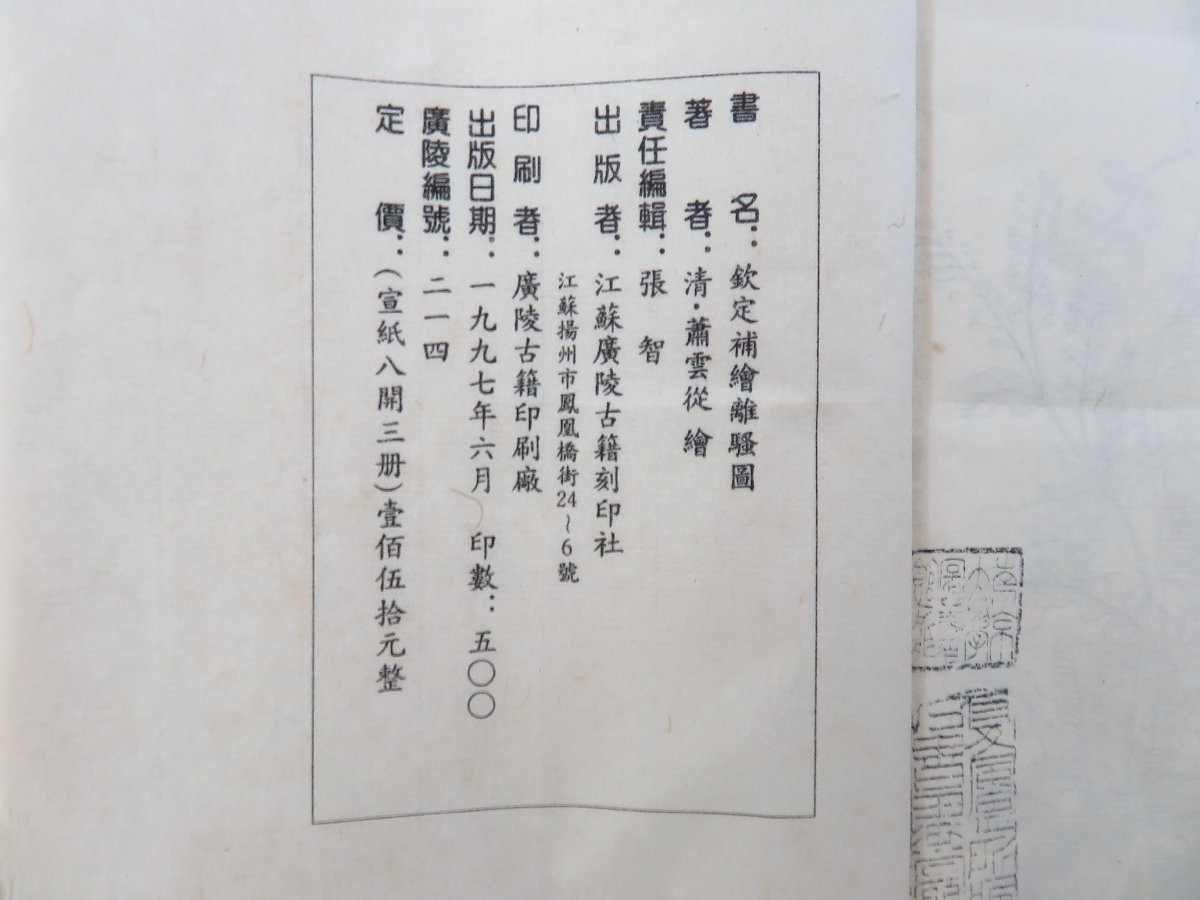 書名：欽定補繪離騷圖
著者：清·蕭雲從 繪
責任編輯：張 智
出版者：江蘇廣陵古籍刻印社
江蘇揚州市鳳凰橋街24～6號
印刷者：廣陵古籍印刷廠
出版日期：一九九七年六月 印數：五〇〇
廣陵編號：二一四
定價：(宣紙八開三册)壹佰伍拾元整